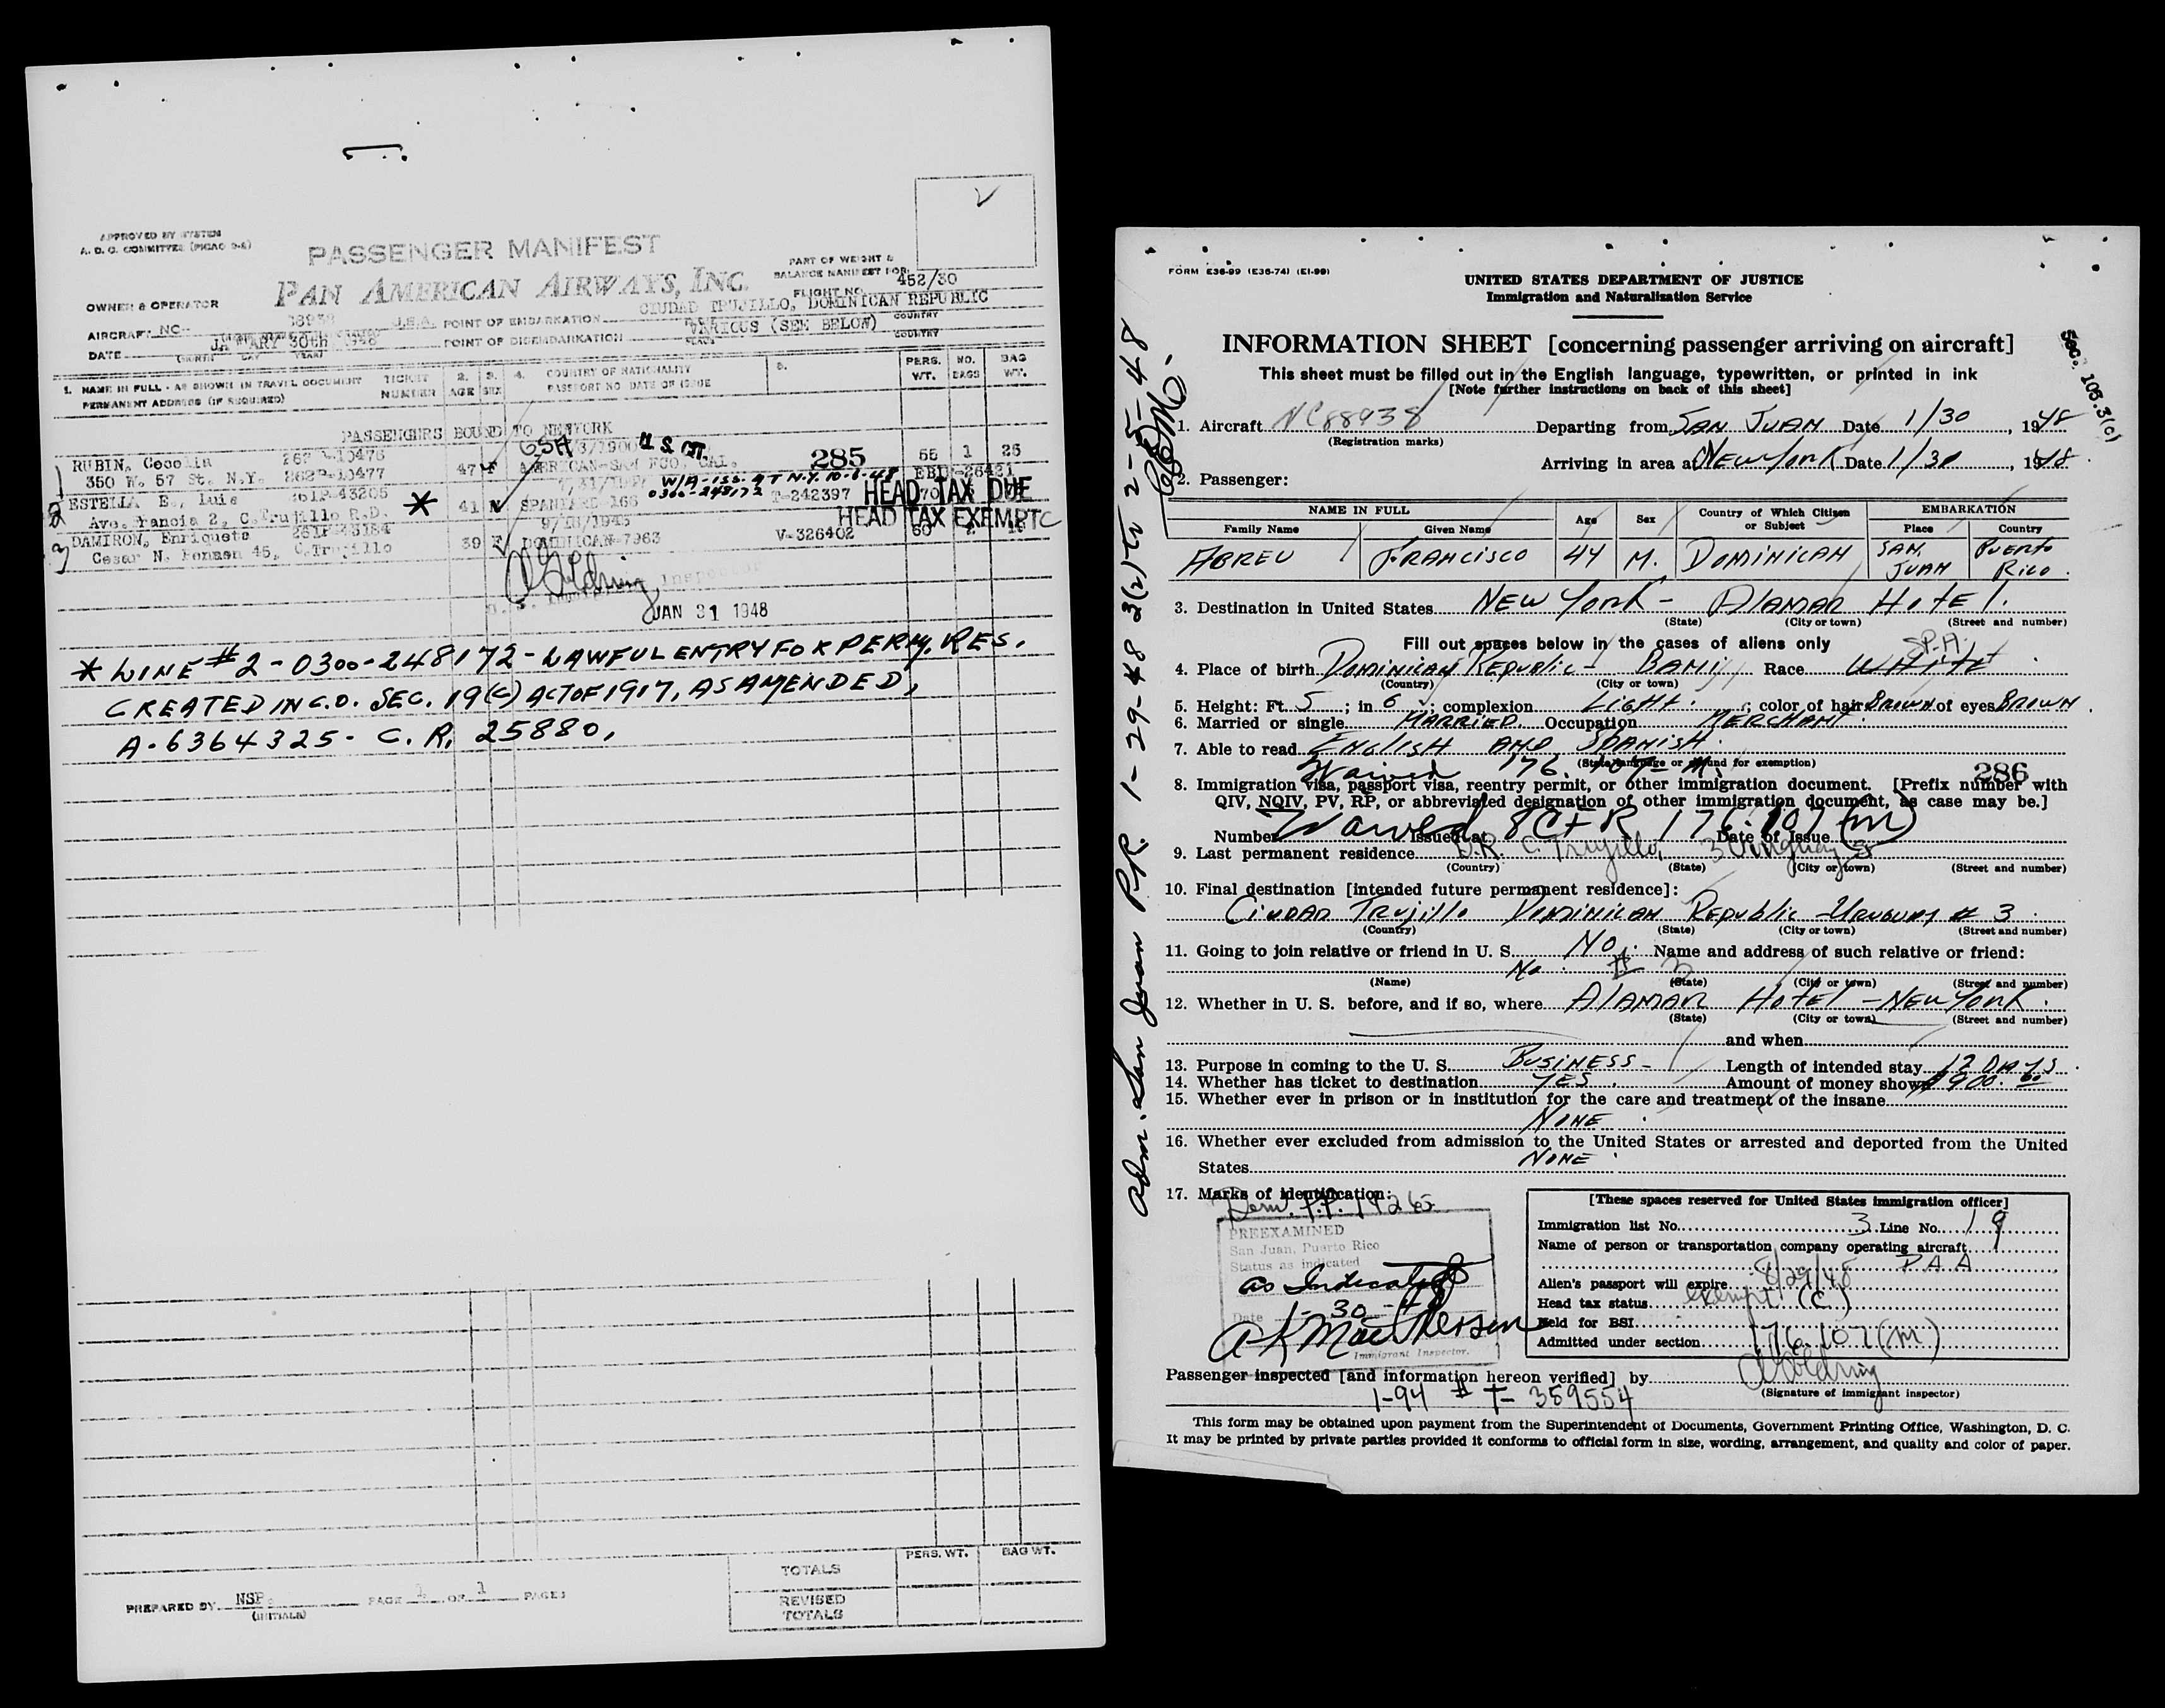 APPROVED BY SYSTEM
A. O. C. COMMITTEE (PICAO 9-6)
PASSENGER MANIFEST
PART OF WEIGHT &
BALANCE MANIFEST FOR
FLIGHT NO. 452/30
PAN AMERICAN AIRWAYS, INC.
OWNER & OPERATOR
CIUDAD TRUJILLO, DOMINICAN REPUBLIC
AIRCRAFT NC- U.S.A. POINT OF EMBARKATION COUNTRY
DATE JANUARY 30th 1948 POINT OF DISEMBARKATION VARIOUS (SEE BELOW)
PLACE COUNTRY
(MONTH DAY YEAR)
1. NAME IN FULL - AS SHOWN IN TRAVEL DOCUMENT
PERMANENT ADDRESS (IF REQUIRED)
TICKET NUMBER
2. AGE
3. SEX
4. COUNTRY OF NATIONALITY
PASSPORT NO DATE OF ISSUE
5.
PERS. WT.
NO. BAGS
BAG WT.
PASSENGERS BOUND TO NEWYORK
RUBIN, Cecelia 47 F 285 1 26
350 W. 57 St. N.Y. AMERICAN-SAN FCO. CAL.
ESTELLA E., Luis * 41 SPANIARD 166 T-242397 HEAD TAX DUE
0300-248172
Ave. Francia 2, C.Trujillo R.D. HEAD TAX EXEMPT C
DAMIRON, Enriqueta 39 F DOMINICAN-7963 V-326402
Cesar N. Penson 45, C.Trujillo
JAN 31 1948
* LINE #2 - 0300-248172 - LAWFUL ENTRY FOR PERM. RES.
CREATED IN C.O. SEC. 19(C) ACT OF 1917, AS AMENDED,
A-6364325 - C.R. 25880.
TOTALS
REVISED TOTALS
PERS. WT. BAG WT.
PREPARED BY NSP. PAGE 1 OF 1 PAGES
(INITIALS)
FORM E36-99 (E36-74) (EI-99)
UNITED STATES DEPARTMENT OF JUSTICE
Immigration and Naturalization Service
INFORMATION SHEET [concerning passenger arriving on aircraft]
This sheet must be filled out in the English language, typewritten, or printed in ink
[Note further instructions on back of this sheet]
Sec. 103.3(c)
1. Aircraft NC 88938 Departing from SAN JUAN Date 1/30, 1948
(Registration marks)
Arriving in area at NEW YORK Date 1/30, 1948.
2. Passenger:
NAME IN FULL
Family Name Given Name Age Sex Country of Which Citizen or Subject EMBARKATION
Place Country
ABREU FRANCISCO 44 M. DOMINICAN SAN JUAN PUERTO RICO.
3. Destination in United States NEW YORK - ALAMAR HOTEL.
(State) (City or town) (Street and number)
Fill out spaces below in the cases of aliens only
4. Place of birth DOMINICAN REPUBLIC - BANI Race WHITE
(Country) (City or town)
5. Height: Ft. 5; in 6; complexion LIGHT.; color of hair BROWN of eyes BROWN.
6. Married or single MARRIED Occupation MERCHANT.
7. Able to read ENGLISH AND SPANISH.
(State language or ground for exemption)
Waived 176.107-M. 286
8. Immigration visa, passport visa, reentry permit, or other immigration document. [Prefix number with
QIV, NQIV, PV, RP, or abbreviated designation of other immigration document, as case may be.]
Number Waived 8 CFR 176.107(m) Issued at Date of Issue
9. Last permanent residence D.R. C. Trujillo, 3 Uruguay
(Country) (State) (City or town) (Street and number)
10. Final destination [intended future permanent residence]:
CIUDAD TRUJILLO DOMINICAN REPUBLIC - URUGUAY # 3.
(Country) (State) (City or town) (Street and number)
11. Going to join relative or friend in U. S. NO. Name and address of such relative or friend:
No. # 3
(Name) (State) (City or town) (Street and number)
12. Whether in U. S. before, and if so, where ALAMAR HOTEL - NEW YORK.
(State) (City or town) (Street and number)
and when
13. Purpose in coming to the U. S. BUSINESS - Length of intended stay 12 DAYS.
14. Whether has ticket to destination YES. Amount of money shown $900.00
15. Whether ever in prison or in institution for the care and treatment of the insane
NONE.
16. Whether ever excluded from admission to the United States or arrested and deported from the United
States NONE.
17. Marks of identification:
PREEXAMINED
San Juan, Puerto Rico
Status as indicated
as Indicated
Date 1-30-48
Immigrant Inspector.
[These spaces reserved for United States immigration officer]
Immigration list No. 3 Line No. 19
Name of person or transportation company operating aircraft
PAA
Alien's passport will expire
Head tax status exempt (C)
Held for BSI
Admitted under section 176.107(m)
Passenger inspected [and information hereon verified] by
(Signature of immigrant inspector)
I-94 # T-359554
This form may be obtained upon payment from the Superintendent of Documents, Government Printing Office, Washington, D. C.
It may be printed by private parties provided it conforms to official form in size, wording, arrangement, and quality and color of paper.
Adm. San Juan P.R. 1-29-48 3(2) to 2-5-48